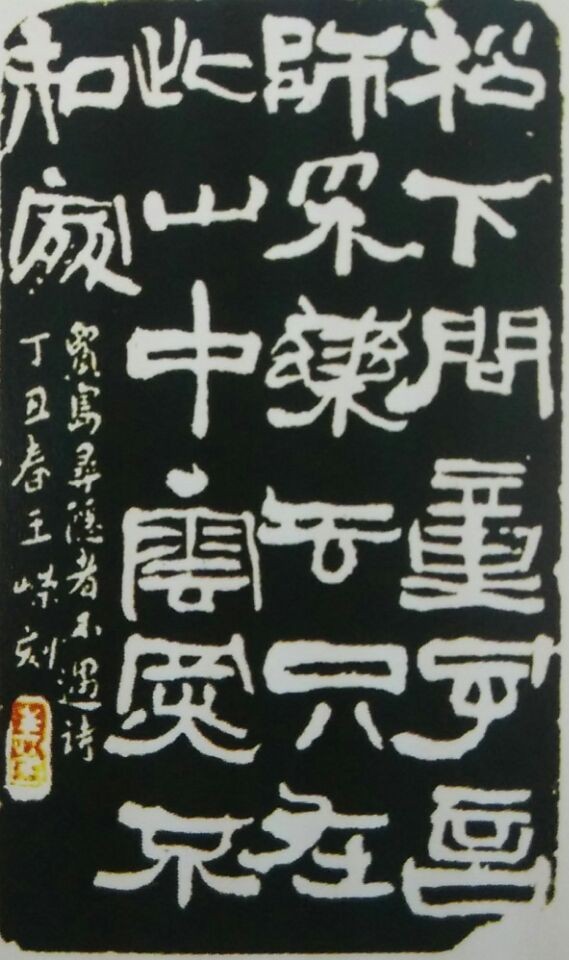 松下問童子言
師采藥去只在
此山中雲深不
知處
賈島尋隱者不遇詩
丁丑春王嶸刻